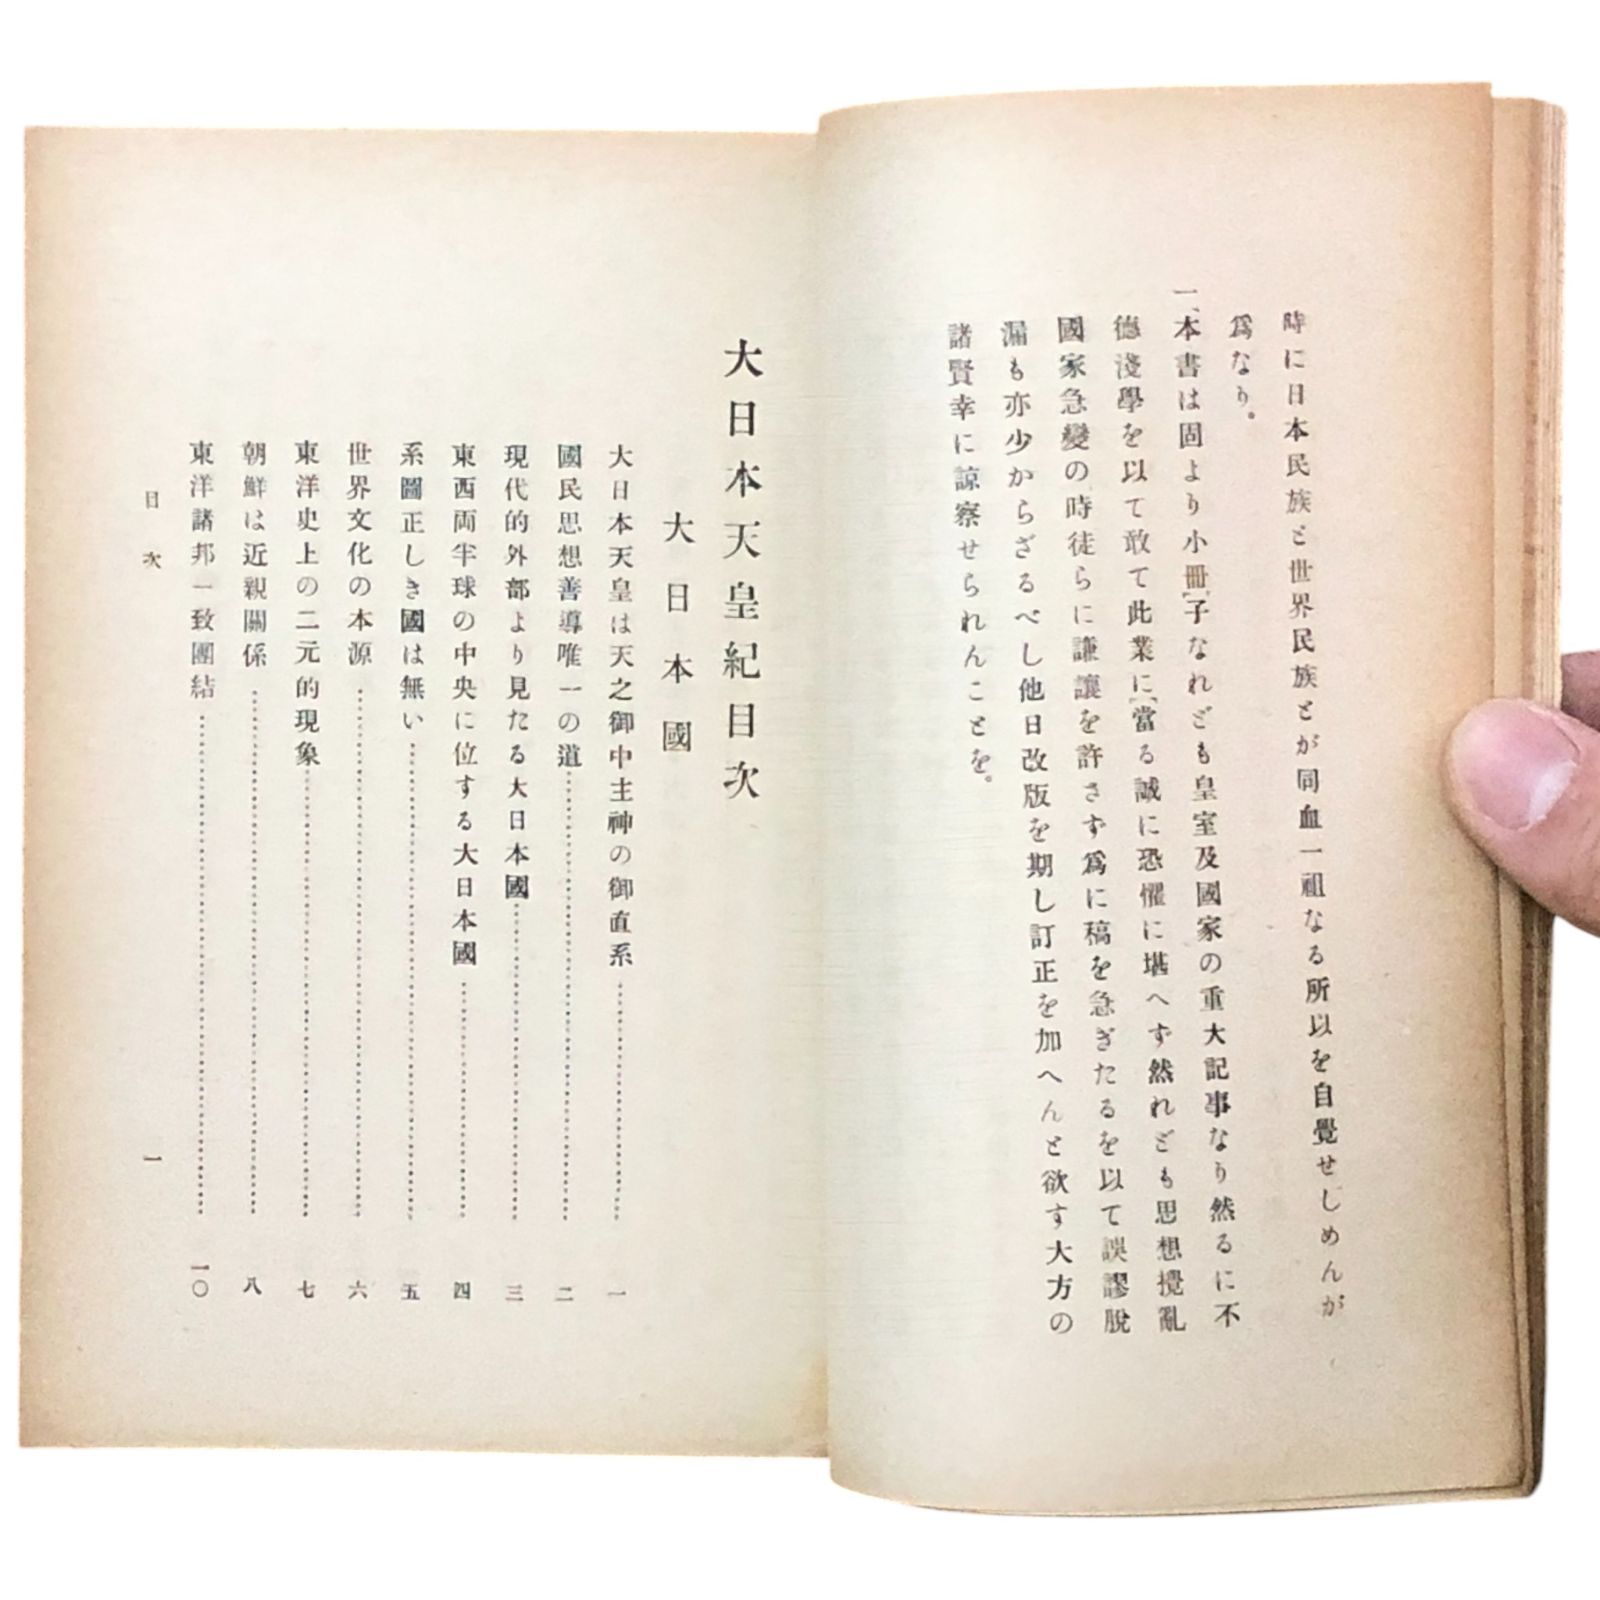 時に日本民族と世界民族とが同血一祖なる所以を自覺せしめんが
爲なり。
一、本書は固より小冊子なれども皇室及國家の重大記事なり然るに不
德淺學を以て敢て此業に當る誠に恐懼に堪へず然れども思想攪亂
國家急變の時徒らに謙讓を許さず爲に稿を急ぎたるを以て誤謬脫
漏も亦少からざるべし他日改版を期し訂正を加へんと欲す大方の
諸賢幸に諒察せられんことを。
大日本天皇紀目次
大日本國
大日本天皇は天之御中主神の御直系……一
國民思想善導唯一の道……二
現代的外部より見たる大日本國……三
東西両半球の中央に位する大日本國……四
系圖正しき國は無い……五
世界文化の本源……六
東洋史上の二元的現象……七
朝鮮は近親關係……八
東洋諸邦一致團結……一〇
目次
一